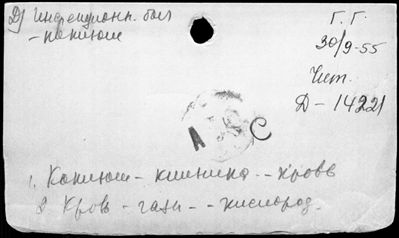 Д) Инфекционн. бол
- коклюш
Г. Г.
30/9-55
Чит.
Д-14221
А С
1. Коклюш - клиника -- кровь
2 Кров - газы -- кислород.